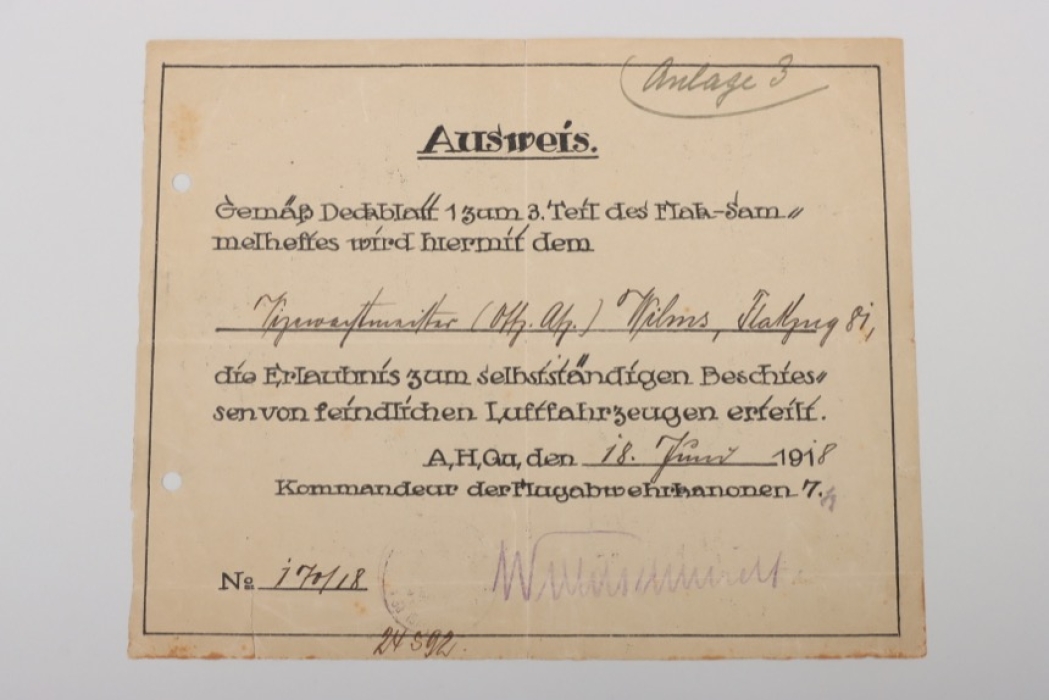 Anlage 3
Ausweis.
Gemäß Deckblatt 1 zum 3. Teil des Flak-Sam„
melheftes wird hiermit dem
Vizewachtmeister (Offz. Asp.) Wilms, Flakzug 81,
die Erlaubnis zum selbstständigen Beschies„
sen von feindlichen Luftfahrzeugen erteilt.
A,H,Qu, den 18. Juni 1918
Kommandeur der Flugabwehrkanonen 7.
No 170/18
24592.